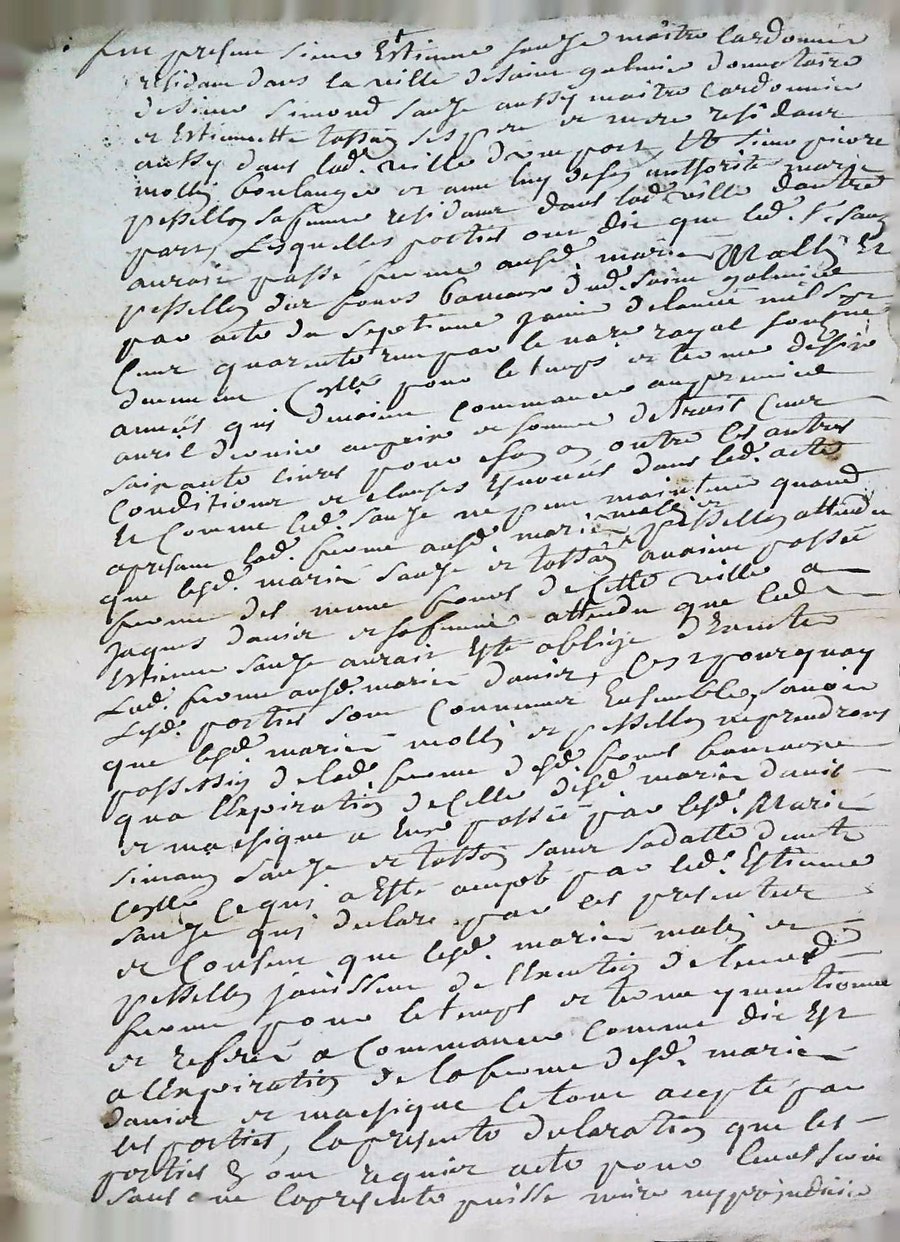 fut presant sieur Estienne sauze maitre Cordonnier
residant dans la ville de saint galmier donnataire
de sieur Simond sauze aussy maitre Cordonnier
et Estiennette tosson ses pere et mere residant
aussy dans lad. ville d'une part, Et sieur pierre
mollin boulanger et anne de luy authorisée marie
sa femme residant dans lad. ville d'autre
part, Lesquelles parties ont dit que led. Sr. sauze
auroit passé ferme ausd. mariés Mollin Et
d'un fonds aud. saint galmier
par acte du septieme janvier de l'année mil sept
Cent quarente par le nore royal soussigné
Celle pour le temps et terme de six
années qui devoient Commancer au premier
avril dernier au prix et somme de trois Cent
soixante livres pour chacun an outre les autres
Conditions et clauses Enoncés dans led. acte
Et Comme led. sauze ne peut maintenir quand
a presant lad. ferme ausd. mariés mollin et attendu
que lesd. mariés sauze et tosson avoient passé
ferme des meme fonds de cette ville a
Jaques danier et sa femme attendu que led.
Estienne sauze auroit Esté obligé d'Executer
Lad. ferme ausd. mariés danier, C'est pourquoy
Lesd. parties sont Convenues Ensemble, sçavoir
que lesd. mariés mollin et reprendront
possession de lad. ferme desd. fonds
qu'a l'Expiration de Celle desd. mariés danier
et a Eux passée par lesd. Mariés
simond sauze et tosson sauf sa datte
Celle Ce qui a Esté accepté par led. Estienne
sauze qui declare par ces presentes
et Consent que lesd. mariés mollin et
jouissent de l'Execution de leurd.
ferme pour le temps et terme y mentionné
et referé a Commancer Comme dit Est
a l'Expiration de la ferme desd. mariés
danier et le tout accepté par
les parties, la presente declaration que les
parties ont requis acte pour leur servir
sans que la presente puisse nuire ny prejudicier